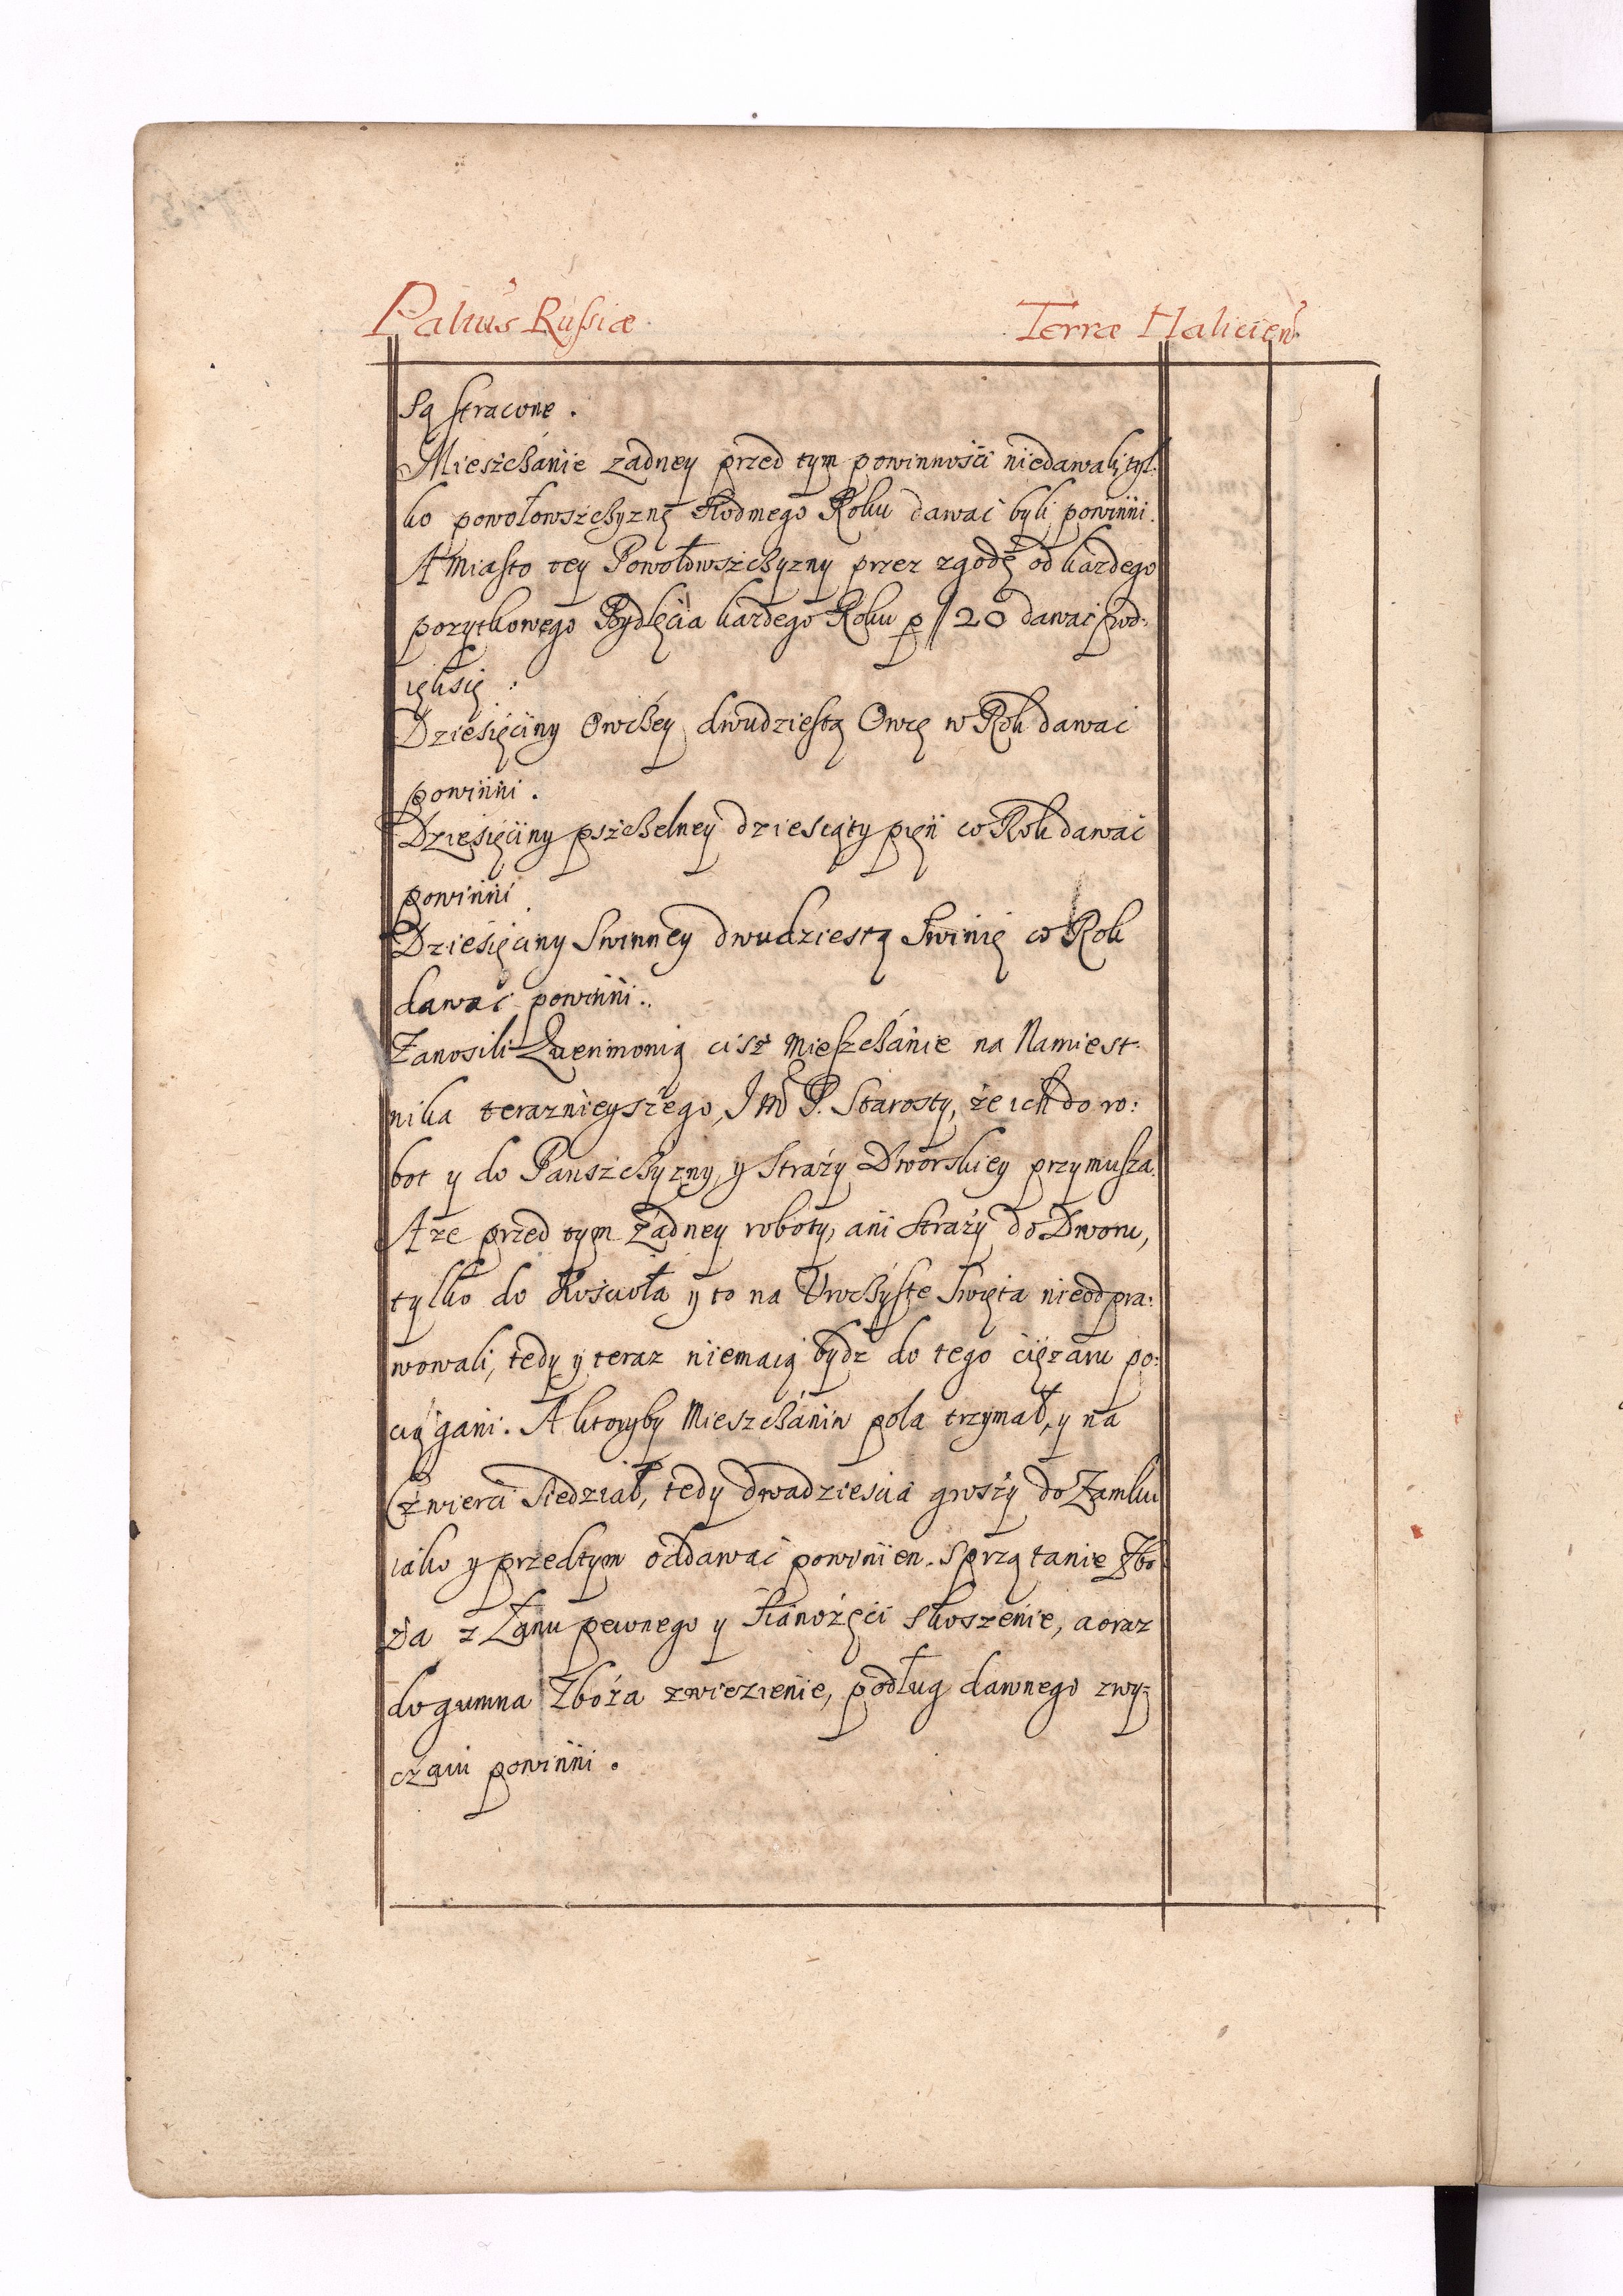 Palñs Rußiæ Terræ Halicien̄
Są stracone.
Mieszchanie zadney przed tym powinnosci niedawali, tyl:
ko powołowszchyznę siodmego Roku dawać byli powinni.
A miasto tey Powołowszchyzny przez zgodę od kazdego
pozytkowego Bydlęcia kazdego Roku p 20 dawać pod:
ięli się.
Dziesięciny Owchey dwudziestą Owcę w Rok dawać
powinni.
Dziesięciny pszchelney dziesiąty pień co Rok dawać
powinni
Dziesięciny Swinney dwudziestą Swinię co Rok
dawać powinni.
Zanosili Querimonią cisz Mieszchanie na Namiest:
nika teraznieyszego, Jm P. Starosty, że ich do ro:
bot y do Panszchyzny, y Straży Dworskiey przymusza.
A że przed tym żadney roboty, ani Straży do Dworu,
tylko do Kościoła y to na Urochyste Swięta nieodpra:
wowali, tedy y teraz niemaią bydź do tego ciężaru po:
ciągani. A ktoryby Mieszchanin pola trzymał, y na
Czwierci siedział, tedy dwadziescia groszy do Zamku
iako y przedtym oddawać powinien. Sprzątanie Zbo
ża z Łanu pewnego y Sianożęci skoszenie, a oraz
do gumna Zboża zwiezienie, podług dawnego zwy:
czaiu powinni.